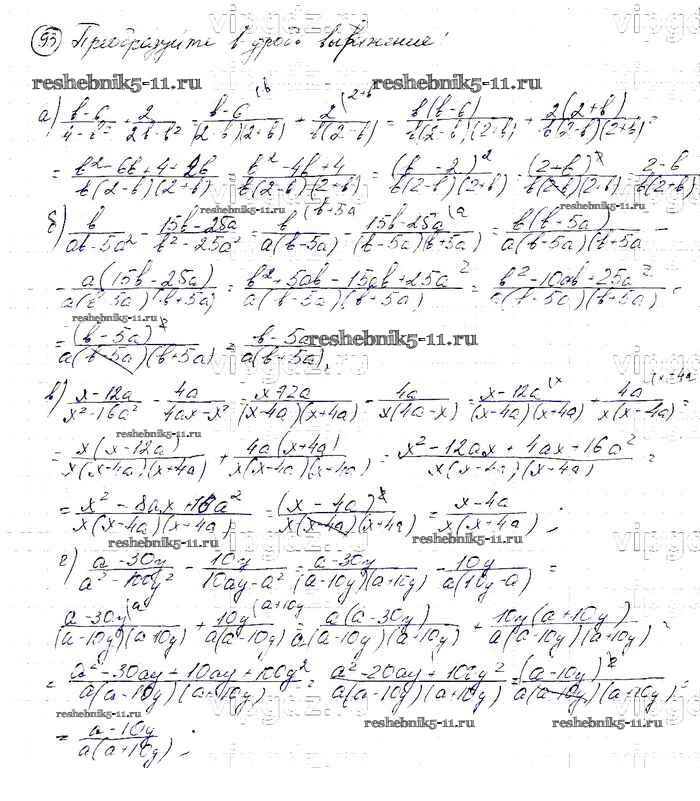 93) Преобразуйте в дробь выражение:
reshebnik5-11.ru reshebnik5-11.ru
а) (b-6)/(4-b²) + 2/(2b-b²) = (b-6)/((2-b)(2+b)) + 2/(b(2-b)) = b(b-6)/(b(2-b)(2+b)) + 2(2+b)/(b(2-b)(2+b)) =
= (b²-6b+4+2b)/(b(2-b)(2+b)) = (b²-4b+4)/(b(2-b)(2+b)) = (b-2)²/(b(2-b)(2+b)) = (2-b)²/(b(2-b)(2+b)) = (2-b)/(b(2+b))
reshebnik5-11.ru reshebnik5-11.ru
б) b/(ab-5a²) - (15b-25a)/(b²-25a²) = b/(a(b-5a)) - (15b-25a)/((b-5a)(b+5a)) = b(b+5a)/(a(b-5a)(b+5a)) -
- a(15b-25a)/(a(b-5a)(b+5a)) = (b²+5ab-15ab+25a²)/(a(b-5a)(b+5a)) = (b²-10ab+25a²)/(a(b-5a)(b+5a)) =
reshebnik5-11.ru
= (b-5a)²/(a(b-5a)(b+5a)) = (b-5a)/(a(b+5a)); reshebnik5-11.ru
в) (x-12a)/(x²-16a²) - 4a/(4ax-x²) = (x-12a)/((x-4a)(x+4a)) - 4a/(x(4a-x)) = (x-12a)/((x-4a)(x+4a)) + 4a/(x(x-4a)) =
reshebnik5-11.ru
= x(x-12a)/(x(x-4a)(x+4a)) + 4a(x+4a)/(x(x-4a)(x+4a)) = (x²-12ax+4ax+16a²)/(x(x-4a)(x-4a)) =
= (x²-8ax+16a²)/(x(x-4a)(x-4a)) = (x-4a)²/(x(x-4a)(x+4a)) = (x-4a)/(x(x-4a));
reshebnik5-11.ru reshebnik5-11.ru
г) (a-30y)/(a²-100y²) - 10y/(10ay-a²) = (a-30y)/((a-10y)(a+10y)) - 10y/(a(10y-a)) =
(a-30y)/((a-10y)(a+10y)) + 10y/(a(a-10y)) = a(a-30y)/(a(a-10y)(a-10y)) + 10y(a+10y)/(a(a-10y)(a+10y)) =
= (a²-30ay+10ay+100y²)/(a(a-10y)(a+10y)) = (a²-20ay+100y²)/(a(a-10y)(a+10y)) = (a-10y)²/(a(a-10y)(a+10y)) =
reshebnik5-11.ru reshebnik5-11.ru reshebnik5-11.ru
= (a-10y)/(a(a+10y));